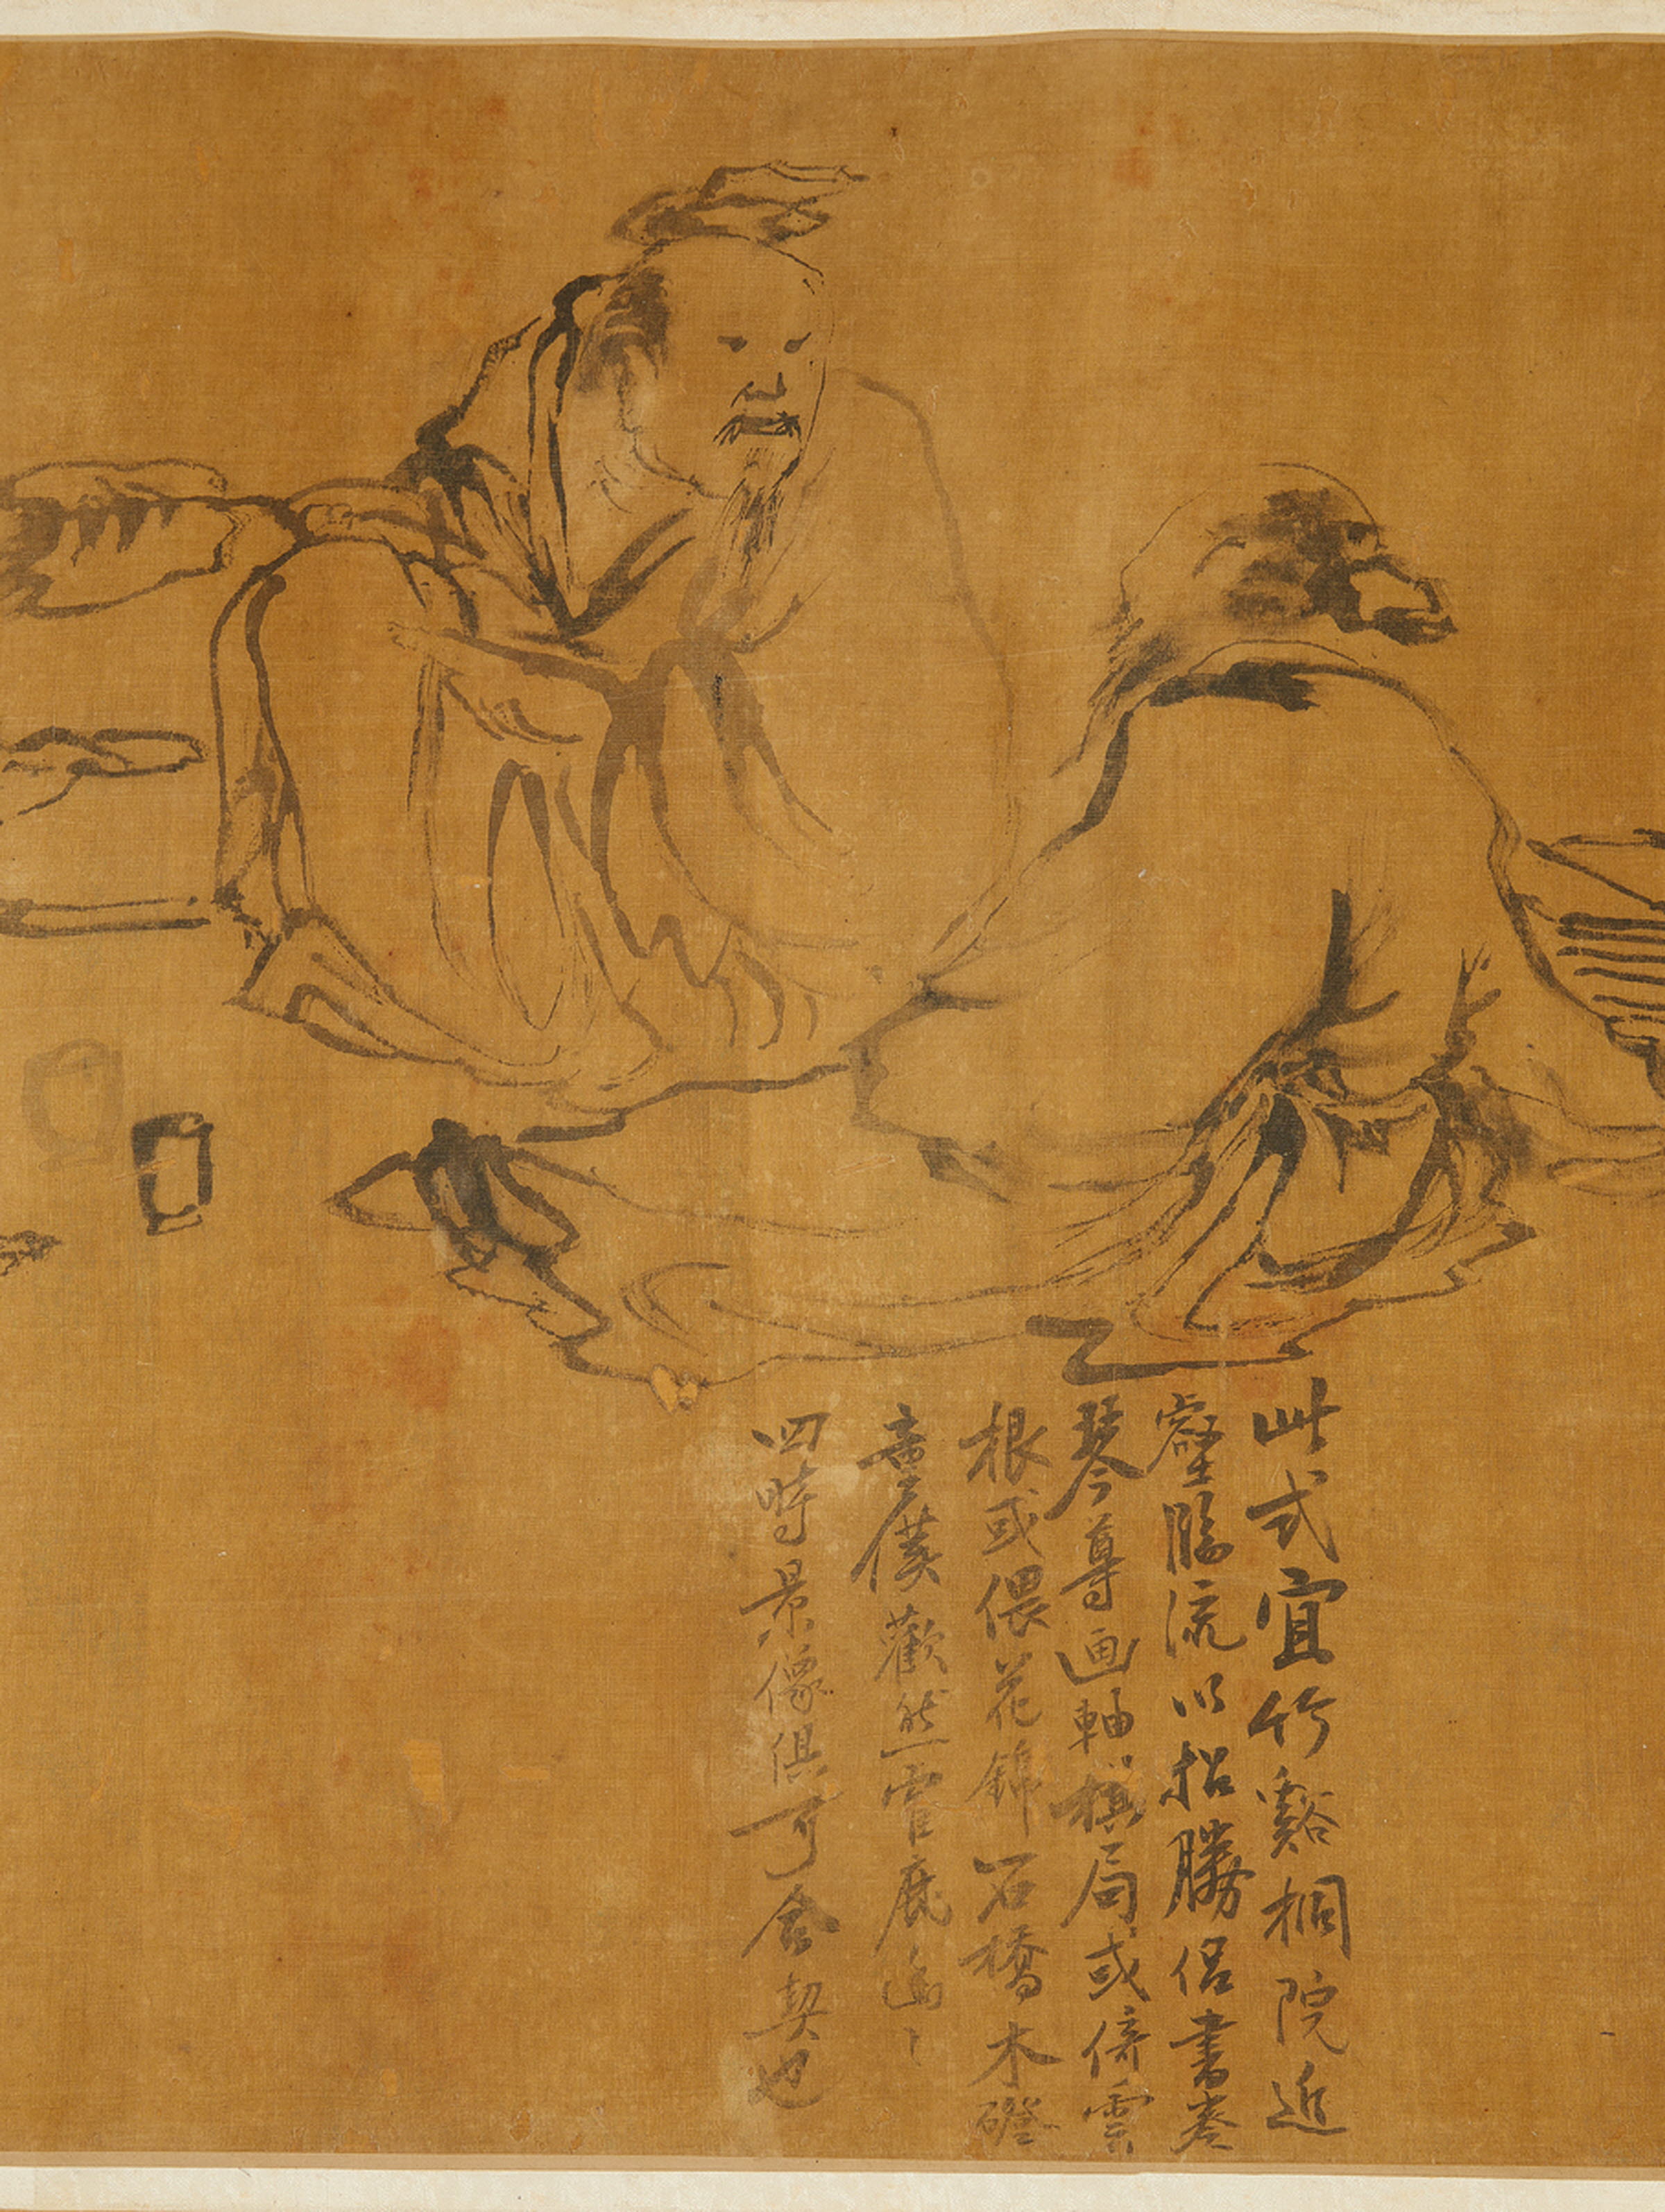 此式宜竹谿桐院近
壑臨流以招勝侶書卷
琴尊画軸棋局或倚雲
根或偎花錦石橋木磴
童僕歡然官庶
四時景像俱可合契也